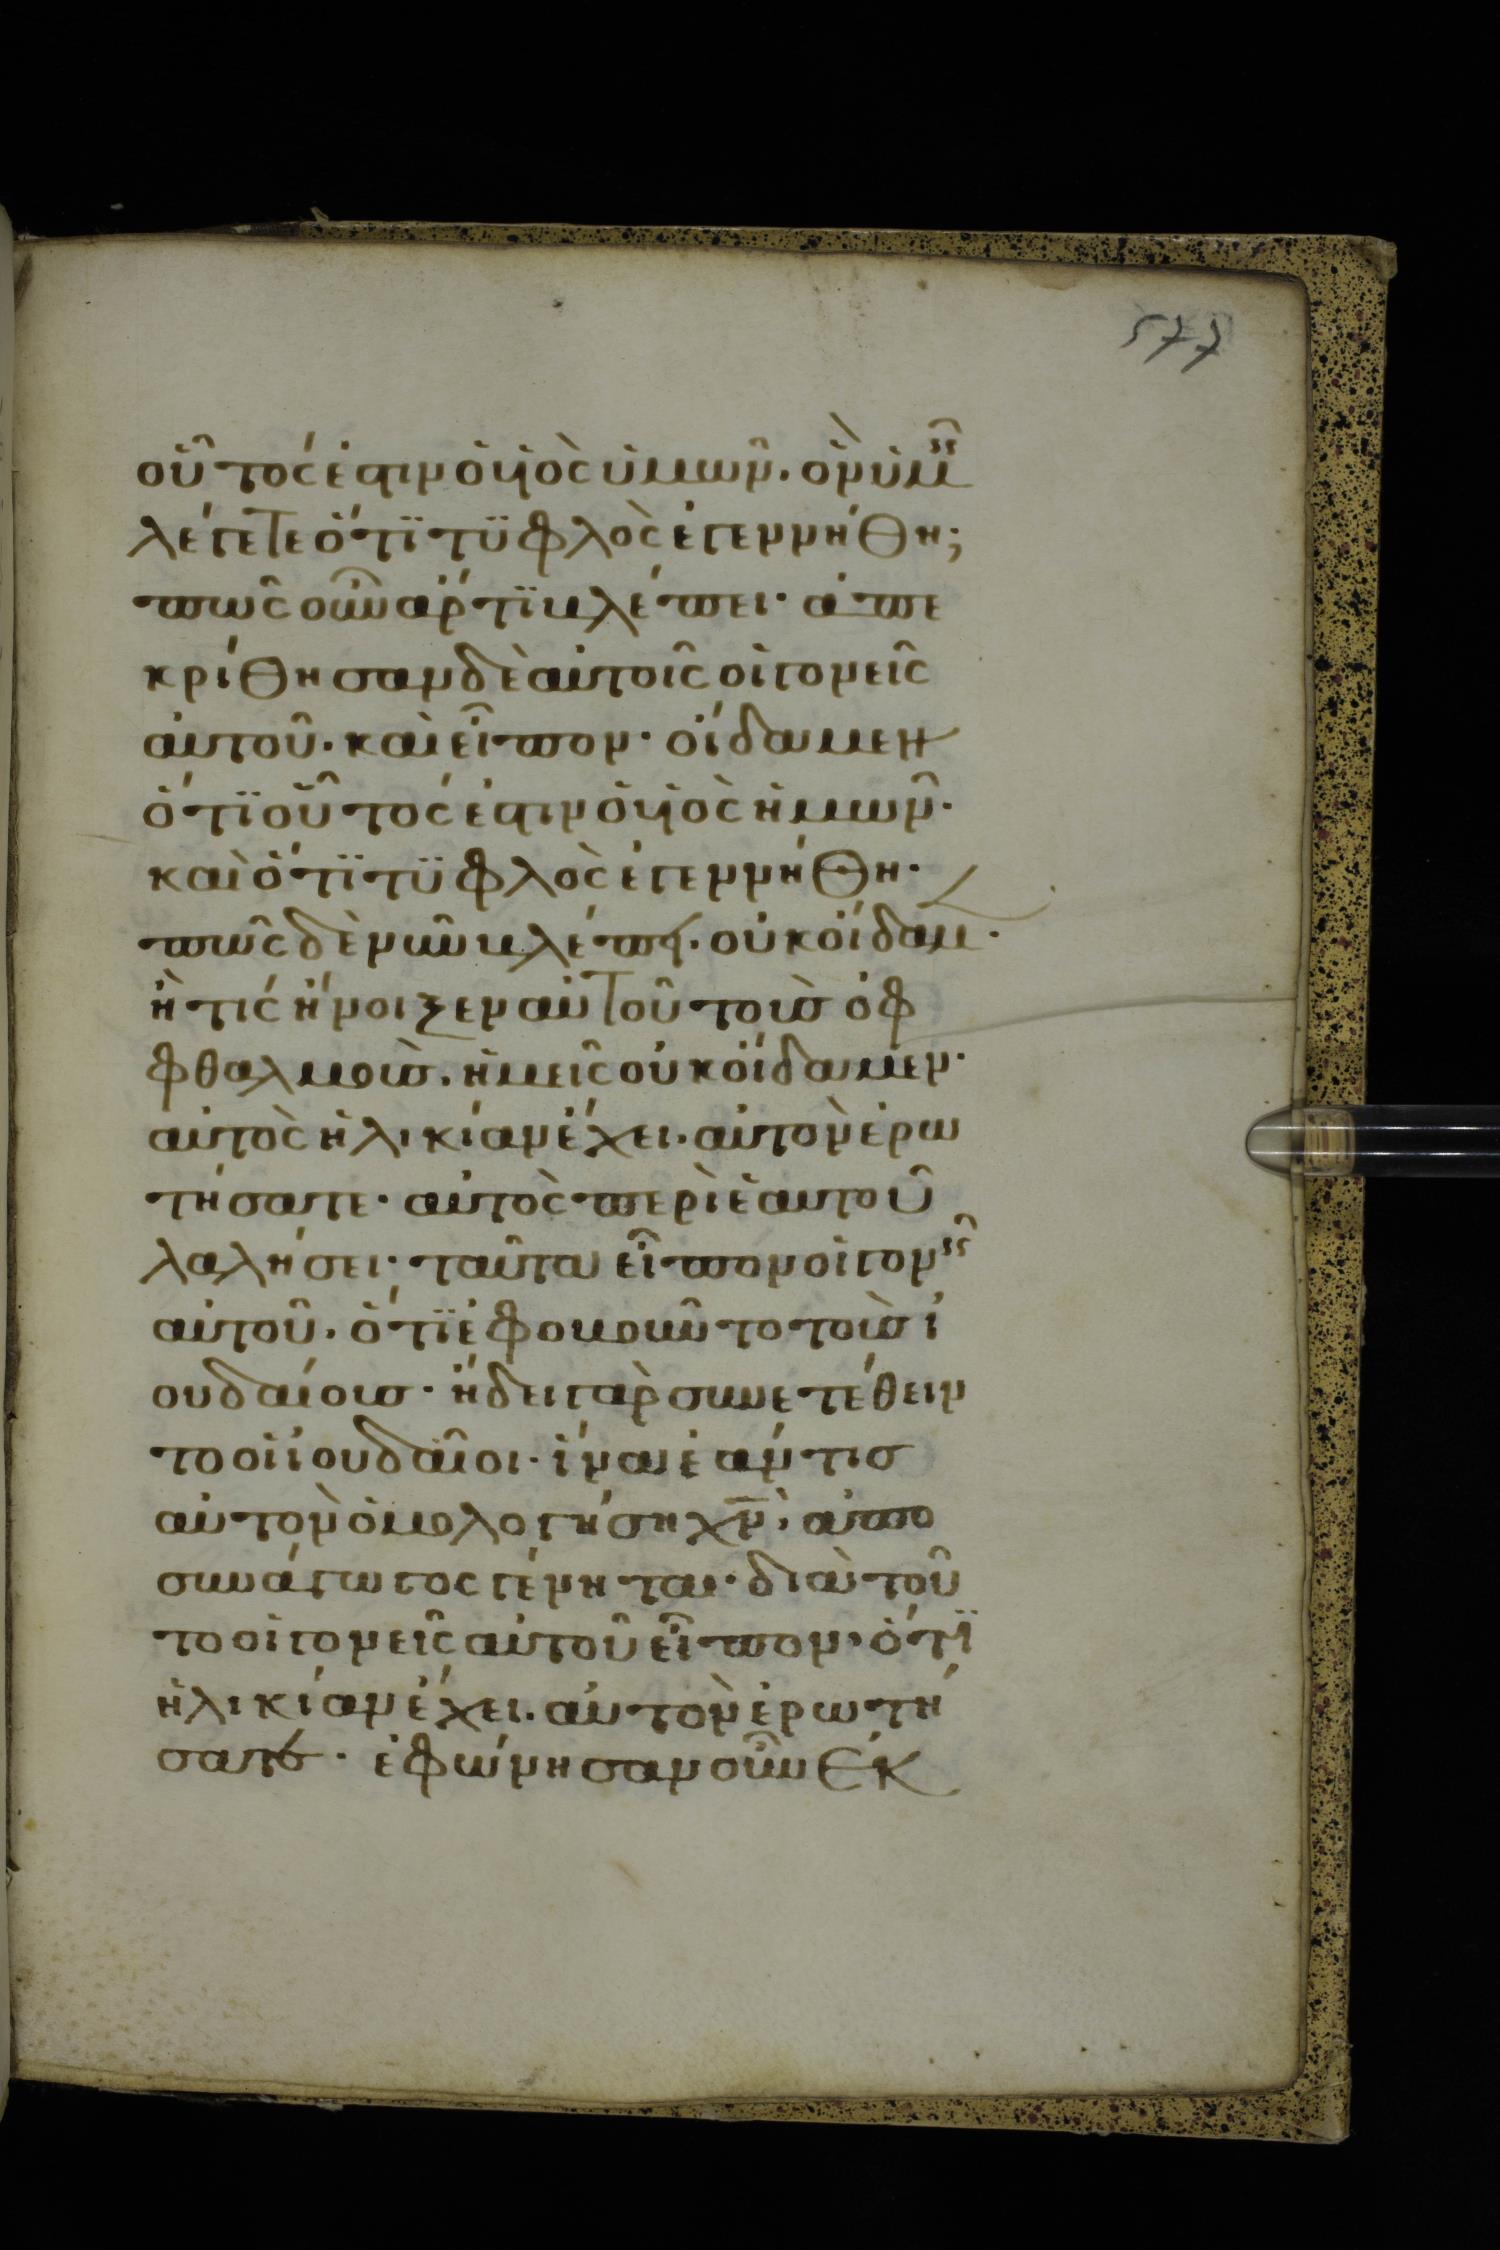 577
οὗτός ἐστιν ὁ υἱὸς ὑμῶν· ὃν ὑμεῖς
λέγετε ὅτϊ τϋφλὸς ἐγεννήθη;
πῶς οὖν ἄρτϊ βλέπει· ἀπε
κρίθησαν δὲ αὐτοῖς οἱ γονεῖς
αὐτοῦ· καὶ εἶπον· οἴδαμεν
ὅτϊ οὗτός ἐστιν ὁ υἱὸς ἡμῶν·
καὶ ὅτϊ τϋφλὸς ἐγεννήθη·
πῶς δὲ νῦν βλέπει· οὐκ οἴδαμ·
ἢ τίς ἤνοιξεν αὐτοῦ τοὺσ ὀφ
φθαλμοὺσ· ἡμεῖς οὐκ οἴδαμεν·
αὐτὸς ἡλικίαν ἔχει· αὐτὸν ἐρω
τήσατε· αὐτὸς περὶ ἑαυτοῦ
λαλήσει· ταῦτα εἶπον οἱ γονεῖς
αὐτοῦ· ὅτϊ ἐφοβοῦντο τοὺσ ἰ
ουδαίουσ· ἤδει γὰρ συνετέθειν
το οἱ ἰουδαῖοι· ἵνα ἐάν τισ
αὐτὸν ὁμολογήση χν̅· ἀπο
συνάγωγος γένηται· διὰ τοῦ
το οἱ γονεῖς αὐτοῦ εἶπον· ὅτϊ
ἡλικίαν ἔχει· αὐτὸν ἐρωτή
σατε· ἐφώνησαν οὖν ἐκ